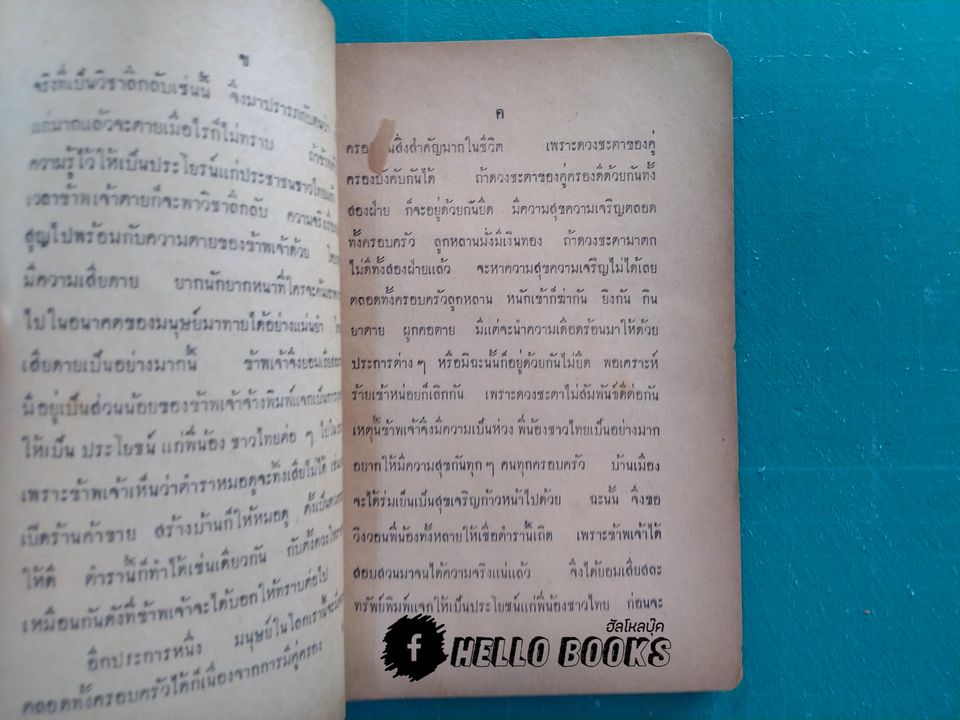 ข
จริงที่เป็นวิชาลึกลับเช่นนี้ จึงมาปรารภกับ
แก่มากแล้วจะตายเมื่อไรก็ไม่ทราบ
ความรู้ไว้ให้เป็นประโยชน์แก่ประชาชนชาวไทย
เวลาข้าพเจ้าตายก็จะพาวิชาลึกลับ ความจริง
สูญไปพร้อมกับความตายของข้าพเจ้าด้วย
มีความเสียดาย ยากนักยากหนาที่ใครจะค้น
ไปในอนาคตของมนุษย์มาทายได้อย่างแม่นยำ
เสียดายเป็นอย่างมากนี้ ข้าพเจ้าจึงยอมเสียสละ
มีอยู่เป็นส่วนน้อยของข้าพเจ้าจ้างพิมพ์แจกเป็น
ให้เป็น ประโยชน์ แก่พี่น้อง ชาวไทยต่อ ๆ ไป
เพราะข้าพเจ้าเห็นว่าตำราหมอดูจะทิ้งเสียไม่ได้ เช่น
เปิดร้านค้าขาย สร้างบ้านก็ให้หมอดู
ให้ดี ตำรานี้ก็ทำได้เช่นเดียวกัน กับ
เหมือนกันดังที่ข้าพเจ้าจะได้บอกให้ทราบต่อไป
อีกประการหนึ่ง มนุษย์ในโลกเรานี้จะ
ตลอดทั้งครอบครัวได้ก็เนื่องจากการมีคู่ครอง
ค
ครอง นสิ่งสำคัญมากในชีวิต เพราะดวงชะตาของคู่
ครองบังคับกันได้ ถ้าดวงชะตาของคู่ครองดีด้วยกันทั้ง
สองฝ่าย ก็จะอยู่ด้วยกันยืด มีความสุขความเจริญตลอด
ทั้งครอบครัว ลูกหลานมั่งมีเงินทอง ถ้าดวงชะตามาตก
ไม่ดีทั้งสองฝ่ายแล้ว จะหาความสุขความเจริญไม่ได้เลย
ตลอดทั้งครอบครัวลูกหลาน หนักเข้าก็ฆ่ากัน ยิงกัน กิน
ยาตาย ผูกคอตาย มีแต่จะนำความเดือดร้อนมาให้ด้วย
ประการต่าง ๆ หรือมิฉะนั้นก็อยู่ด้วยกันไม่ยืด พอเคราะห์
ร้ายเข้าหน่อยก็เลิกกัน เพราะดวงชะตาไม่สัมพันธ์ดีต่อกัน
เหตุนี้ข้าพเจ้าจึงมีความเป็นห่วง พี่น้องชาวไทยเป็นอย่างมาก
อยากให้มีความสุขกันทุก ๆ คนทุกครอบครัว บ้านเมือง
จะได้ร่มเย็นเป็นสุขเจริญก้าวหน้าไปด้วย ฉะนั้น จึงขอ
วิงวอนพี่น้องทั้งหลายให้เชื่อตำรานี้เถิด เพราะข้าพเจ้าได้
สอบสวนมาจนได้ความจริงแน่แล้ว จึงได้ยอมเสียสละ
ทรัพย์พิมพ์แจกให้เป็นประโยชน์แก่พี่น้องชาวไทย ก่อนจะ
ฮัลโหลบุ๊ค
f HELLO BOOKS